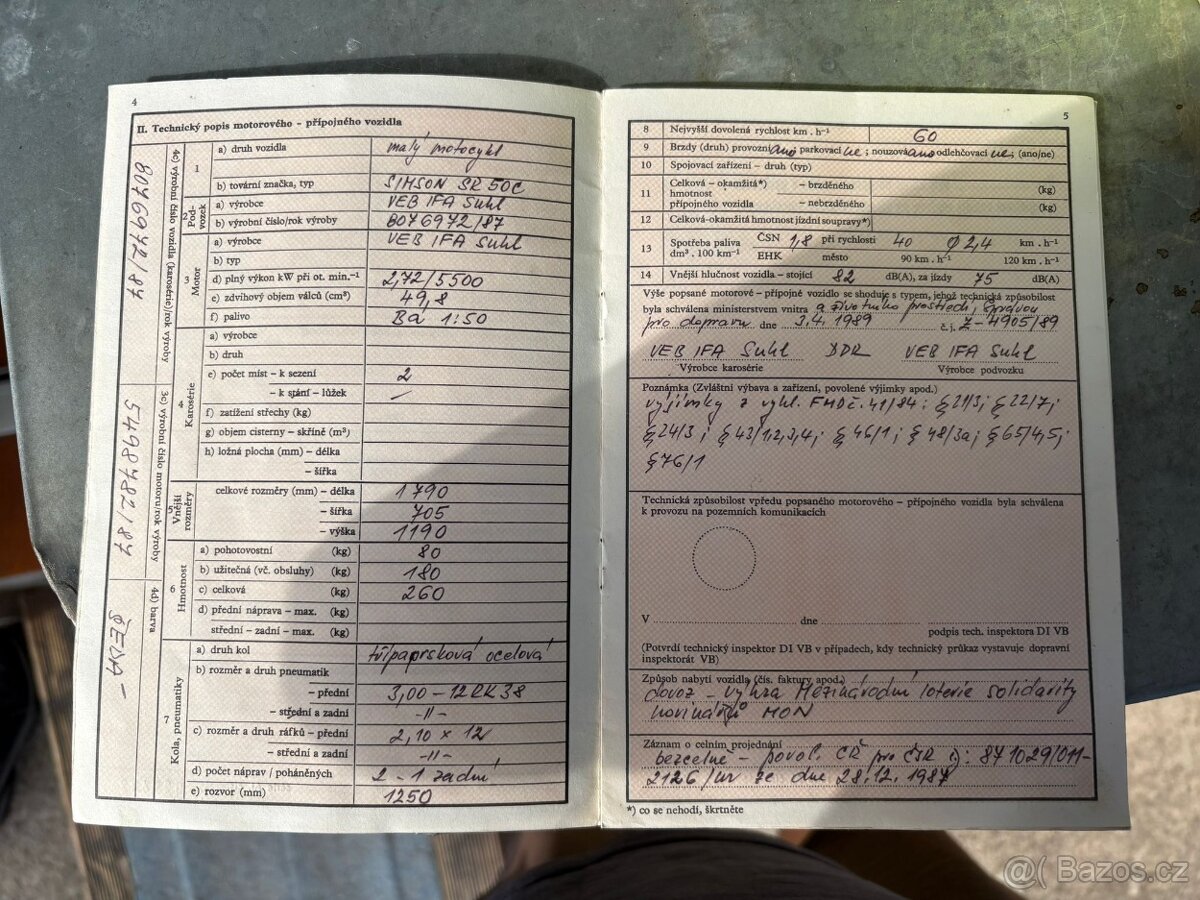 4
II. Technický popis motorového – přípojného vozidla
1
a) druh vozidla malý motocykl
b) tovární značka, typ SIMSON SR 50C
2 Pod-vozek
a) výrobce VEB IFA Suhl
b) výrobní číslo/rok výroby 8076972/87
3 Motor
a) výrobce VEB IFA Suhl
b) typ
d) plný výkon kW při ot. min.⁻¹ 2,72/5500
e) zdvihový objem válců (cm³) 49,8
f) palivo Ba 1:50
4 Karosérie
a) výrobce
b) druh
e) počet míst – k sezení 2
– k stání – lůžek —
f) zatížení střechy (kg)
g) objem cisterny – skříně (m³)
h) ložná plocha (mm) – délka
– šířka
5 Vnější rozměry
celkové rozměry (mm) – délka 1790
– šířka 705
– výška 1190
6 Hmotnost
a) pohotovostní (kg) 80
b) užitečná (vč. obsluhy) (kg) 180
c) celková (kg) 260
d) přední náprava – max. (kg)
střední – zadní – max. (kg)
7 Kola, pneumatiky
a) druh kol třípaprsková ocelová
b) rozměr a druh pneumatik
– přední 3,00-12RK38
– střední a zadní -11-
c) rozměr a druh ráfků – přední 2,10 x 12
– střední a zadní -11-
d) počet náprav / poháněných 2 - 1 zadní
e) rozvor (mm) 1250
4c) výrobní číslo vozidla (karosérie)/rok výroby
8076972/87
3c) výrobní číslo motoru/rok výroby
5498782/87
4d) barva
ŠEDÁ -
5
8 Nejvyšší dovolená rychlost km . h⁻¹ 60
9 Brzdy (druh) provozní ano parkovací ne; nouzová ano odlehčovací ne; (ano/ne)
10 Spojovací zařízení – druh (typ)
11 Celková – okamžitá*) – brzděného (kg)
hmotnost
přípojného vozidla – nebrzděného (kg)
12 Celková-okamžitá hmotnost jízdní soupravy*)
13 Spotřeba paliva ČSN 1,8 při rychlosti 40 Ø 2,4 km . h⁻¹
dm³ . 100 km⁻¹ EHK město 90 km . h⁻¹ 120 km . h⁻¹
14 Vnější hlučnost vozidla – stojící 82 dB(A), za jízdy 75 dB(A)
Výše popsané motorové – přípojné vozidlo se shoduje s typem, jehož technická způsobilost
byla schválena ministerstvem vnitra a životního prostředí, Správou
pro dopravu dne 3.4. 1989 č.j. Z-4905/89
VEB IFA Suhl DDR VEB IFA Suhl
Výrobce karosérie Výrobce podvozku
Poznámka (Zvláštní výbava a zařízení, povolené výjimky apod.)
výjimky z vyhl. FMD č. 41/84: § 21/3; § 22/7;
§ 24/3; § 43/1,2,3,4; § 46/1; § 48/3a; § 65/4,5;
§ 76/1
Technická způsobilost vpředu popsaného motorového – přípojného vozidla byla schválena
k provozu na pozemních komunikacích
V dne
podpis tech. inspektora DI VB
(Potvrdí technický inspektor DI VB v případech, kdy technický průkaz vystavuje dopravní
inspektorát VB)
Způsob nabytí vozidla (čís. faktury apod.)
dovoz - výhra Mezinárodní loterie solidarity
novinářů MON
Záznam o celním projednání
bezcelně - povol. CŘ pro ČSR čj: 871029/011-
2126/ur ze dne 28.12. 1987
*) co se nehodí, škrtněte
Bazos.cz